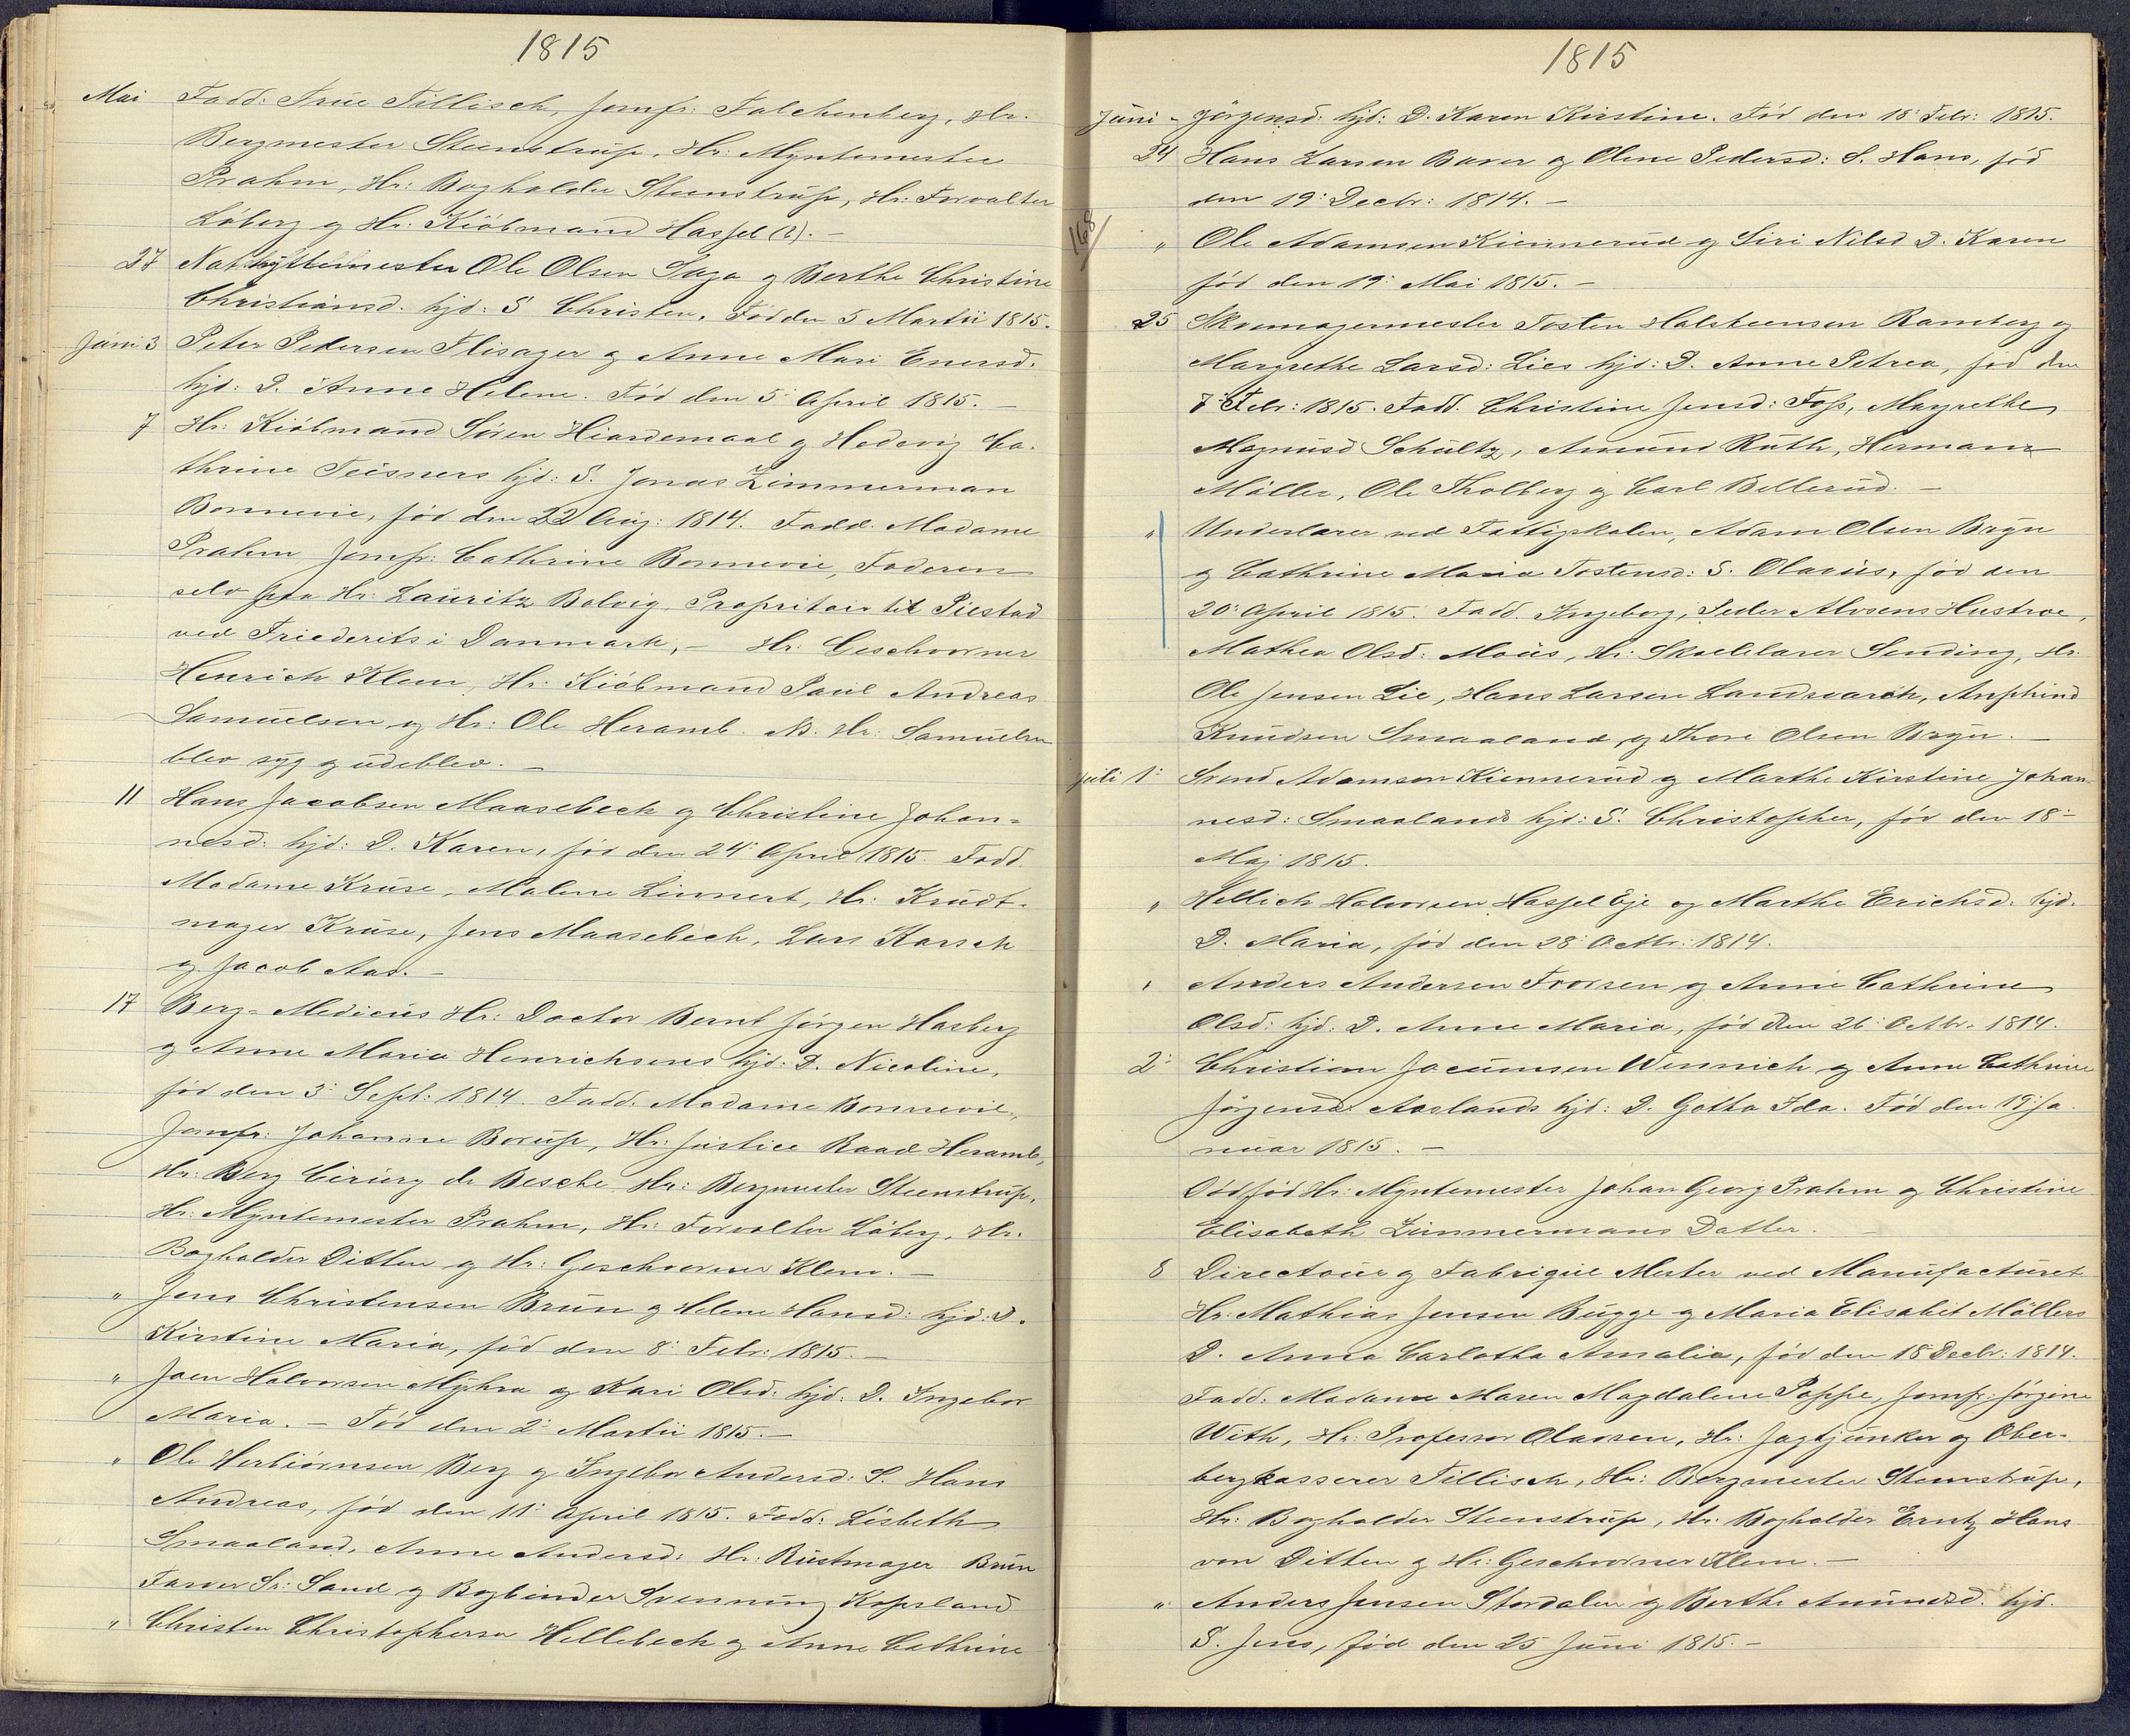 1815
Mai Fadd: Frue Tillisch, Jomfr: Falchenberg, Hr.
Bergmester Steenstrup, Hr: Myntemester
Prahm, Hr: Bogholder Steenstrup, Hr: Forvalter
Löberg og Hr: Kiöbmand Hassel (2). —
27 Olsen Saga og Berthe Christine
Christiansd. hjd: S. Christen. Fød den 5 Martii 1815.
Juni 3 Peter Pedersen Flisager og Anne Mari Enersd.
hjd: D. Anne Helene. Fød den 5' April 1815. —
7 Hr: Kiöbmand Sören Hiardemaal og Hedevig Ca-
thrine Teisners hjd: S. Jonas Zimmerman
Bonnevie, fød den 22 Aug: 1814. Fadd. Madame
Prahm Jomfr: Cathrine Bonnevie, Faderen
selv paa Hr: Lauritz Bolvig, Propritair til Piestad
ved Friederits i Danmark, — Hr: Geschvorner
Henrich Klem, Hr: Kiöbmand Paul Andreas
Samuelsen og Hr: Ole Heramb. NB. Hr: Samuelsen
blev syg og udeblev. —
11 Hans Jacobsen Maasebeck og Christine Johan-
nesd: hjd: D. Karen, fød den 24' April 1815. Fadd.
Madame Kruse, Malene Linnert, Hr: Krudt-
mager Kruse, Jens Maasebech, Lars Karsch
og Jacob Aas. —
17 Berg-Medicus Hr: Doctor Bernt Jörgen Hasberg
og Anne Maria Henrichsens hjd: D. Nicoline,
fød den 3' Sept: 1814. Fadd. Madame Bonnevie,
Jomfr: Johanne Borup, Hr: Justice Raad Heramb,
Hr: Berg Cirurg de Besche Hr: Bergmester Steenstrup,
Hr: Myntemester Prahm, Hr: Forvalter Löberg, Hr.
Bogholder Ditten og Hr: Geschvorner Klem. —
" Jens Christensen Brun og Helene Hansd: hjd: D.
Kirstine Maria, fød den 8' Febr: 1815. —
" Joen Halvorsen Myhra og Kari Olsd: hjd. D. Ingebor
Maria. — Fød den 2' Martii 1815. —
" Ole Herbiörnsen Berg og Ingebor Andersd: S. Hans
Andreas, fød den 11' April 1815. Fadd: Lisbeth
Smaaland, Anne Andersd: Hr: Rustmager Brun
Farver Sr: Sand og Bogbinder Svenning Kopsland
" Christen Christophersen Hellebeck og Anne Cathrine
1815
Juni - Jörgensd. hjd: D. Karen Kirstine. Fød den 18' Febr: 1815.
24 Hans Larsen Baver og Olene Pedersd: S. Hans, fød
den 19' Decbr: 1814. —
168
" Ole Adamsen Kiennerud og Siri Nilsd D. Karen
fød den 19' Mai 1815. —
25 Skoemagermester Tosten Halsteensen Ramberg og
Margrethe Larsd: Lies hjd: D. Anne Petrea, fød den
7' Febr: 1815. Fadd. Christine Jensd: Foss, Margrethe
Magnusd Schultz, Amund Ruth, Herman
Möller, Ole Tholberg og Carl Bellerud. —
" Underlærer ved Fattigskolen, Adam Olsen Bryn
og Cathrine Maria Tostensd: S. Olavus, fød den
20' April 1815. Fadd. Ingeborg, Peder Alvsens Hustroe,
Mathea Olsd: Moüs, Hr: Skoelelærer Sending, Hr.
Ole Jensen Lie, Hans Larsen Landsvarch, Anphind
Knudsen Smaaland, og Thore Olsen Bryn. —
Juli 1' Svend Adamsen Kiennerud og Marthe Kirstine Johan-
nesd: Smaalands hjd: S. Christopher, fød den 18'
Maj 1815.
" Hellich Halvorsen Hassel Eje og Marthe Erichsd. hjd.
D. Maria, fød den 28' Octbr: 1814.
" Anders Andersen Frorsen og Anne Cathrine
Olsd: hjd: D. Anne Maria, fød den 26' Octbr. 1814.
2' Christian Jacumsen Wennich og Anne Cathrine
Jörgensd: Aaslands hjd: D. Gotha Ida. Fød den 19' Ja-
nuar 1815. —
Dödfød Hr: Myntemester Johan Georg Prahm og Christine
Elisabeth Zimmermans Datter. —
8 Directour og Fabrique Mester ved Manufacturet
Hr: Mathias Jensen Bugge og Maria Elisabet Möllers
D. Anna Carlotha Amalia, fød den 18' Decbr: 1814.
Fadd: Madame Maren Magdalene Poppe, Jomfr: Jörgine
With, Hr: Professor Olavsen, Hr: Jagtjunker og Ober-
bergkasserer Tillisch, Hr: Bergmester Steenstrup,
Hr: Bogholder Steenstrup, Hr: Bogholder Erntz Hans
von Ditten og Hr: Geschvorner Klem. —
" Anders Jensen Stordalen og Berthe Amundsd. hjd.
S. Jens, fød den 25 Juni 1815. —